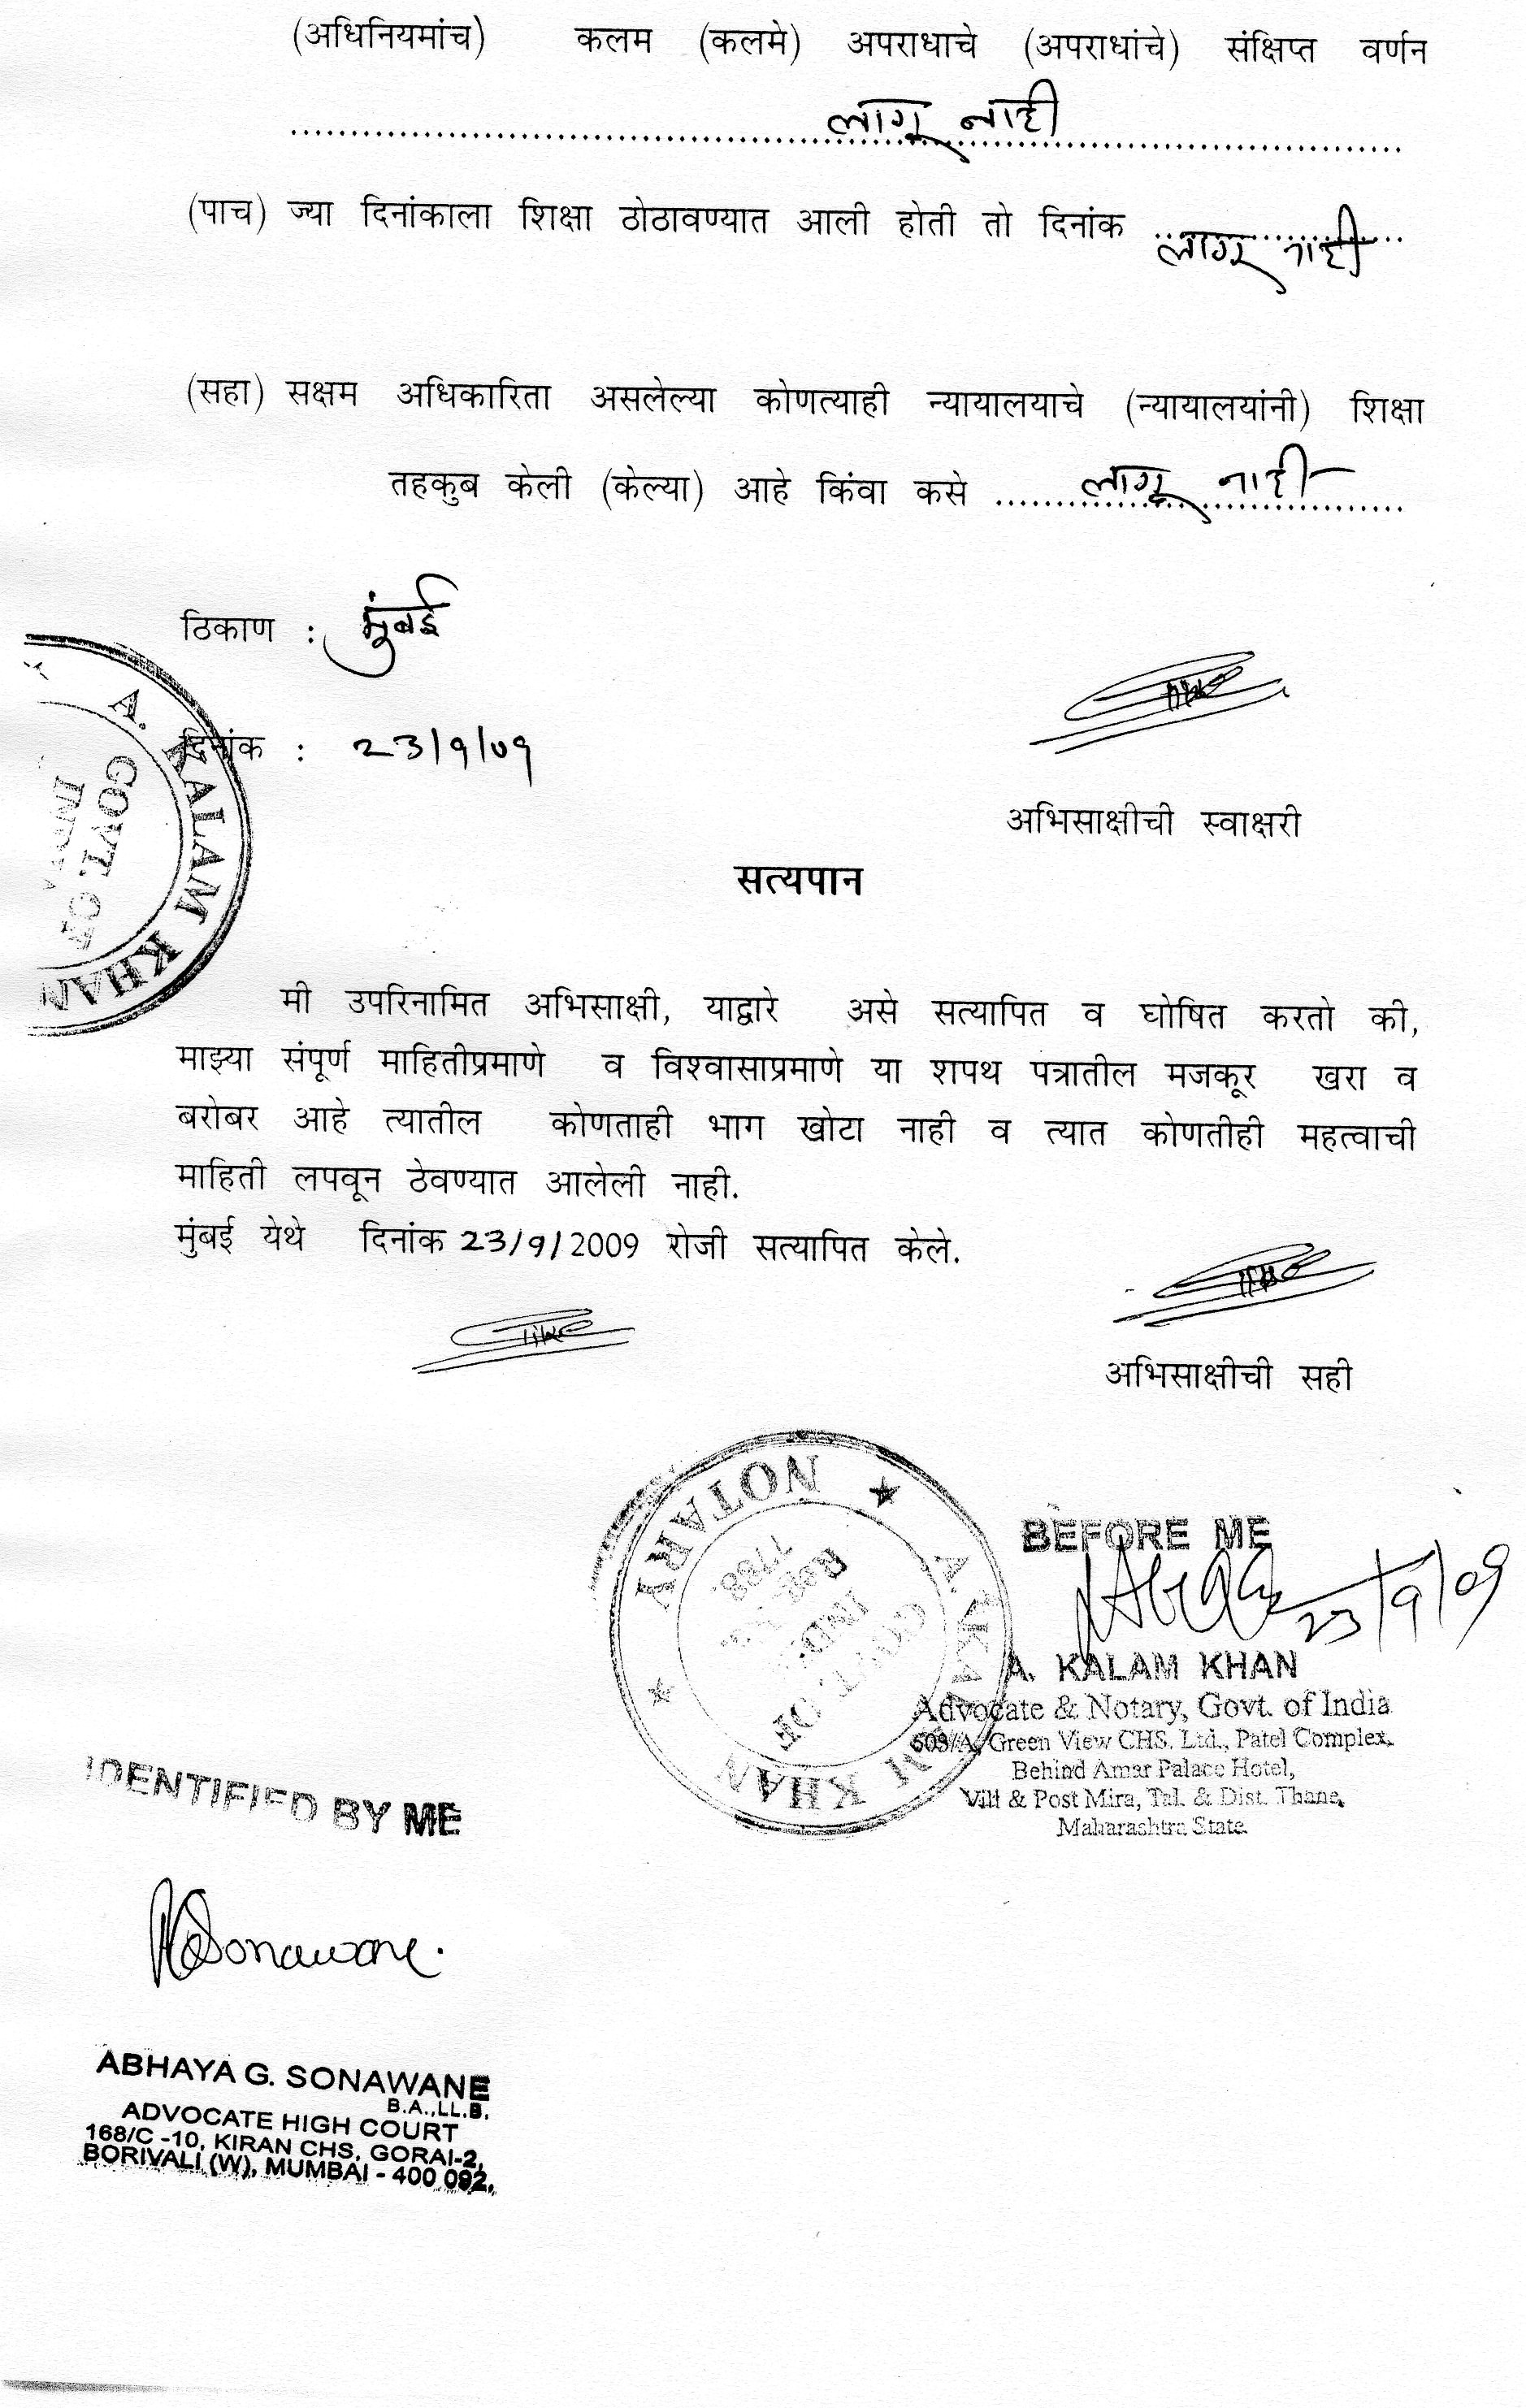 (अधिनियमांच) कलम (कलमे) अपराधाचे (अपराधांचे) संक्षिप्त वर्णन
.......................... लागू नाही ..........................
(पाच) ज्या दिनांकाला शिक्षा ठोठावण्यात आली होती तो दिनांक ........ लागू नाही
(सहा) सक्षम अधिकारिता असलेल्या कोणत्याही न्यायालयाचे (न्यायालयांनी) शिक्षा
तहकुब केली (केल्या) आहे किंवा कसे ........ लागू नाही ........
ठिकाण : मुंबई
दिनांक : 23/9/09
A. KALAM KHAN
GOVT. OF
अभिसाक्षीची स्वाक्षरी
सत्यपान
मी उपरिनामित अभिसाक्षी, याद्वारे असे सत्यापित व घोषित करतो की,
माझ्या संपूर्ण माहितीप्रमाणे व विश्वासाप्रमाणे या शपथ पत्रातील मजकूर खरा व
बरोबर आहे त्यातील कोणताही भाग खोटा नाही व त्यात कोणतीही महत्वाची
माहिती लपवून ठेवण्यात आलेली नाही.
मुंबई येथे दिनांक 23/9/2009 रोजी सत्यापित केले.
अभिसाक्षीची सही
NOTARY
GOVT. OF
KHAN
BEFORE ME
23/9/09
A. KALAM KHAN
Advocate & Notary, Govt. of India
Green View CHS. Ltd., Patel Complex,
Behind Amar Palace Hotel,
Vill & Post Mira, Tal. & Dist. Thane,
Maharashtra State
IDENTIFIED BY ME
Sonawane.
ABHAYA G. SONAWANE
B.A.,LL.B.
ADVOCATE HIGH COURT
168/C -10, KIRAN CHS, GORAI-2,
BORIVALI (W), MUMBAI - 400 092.